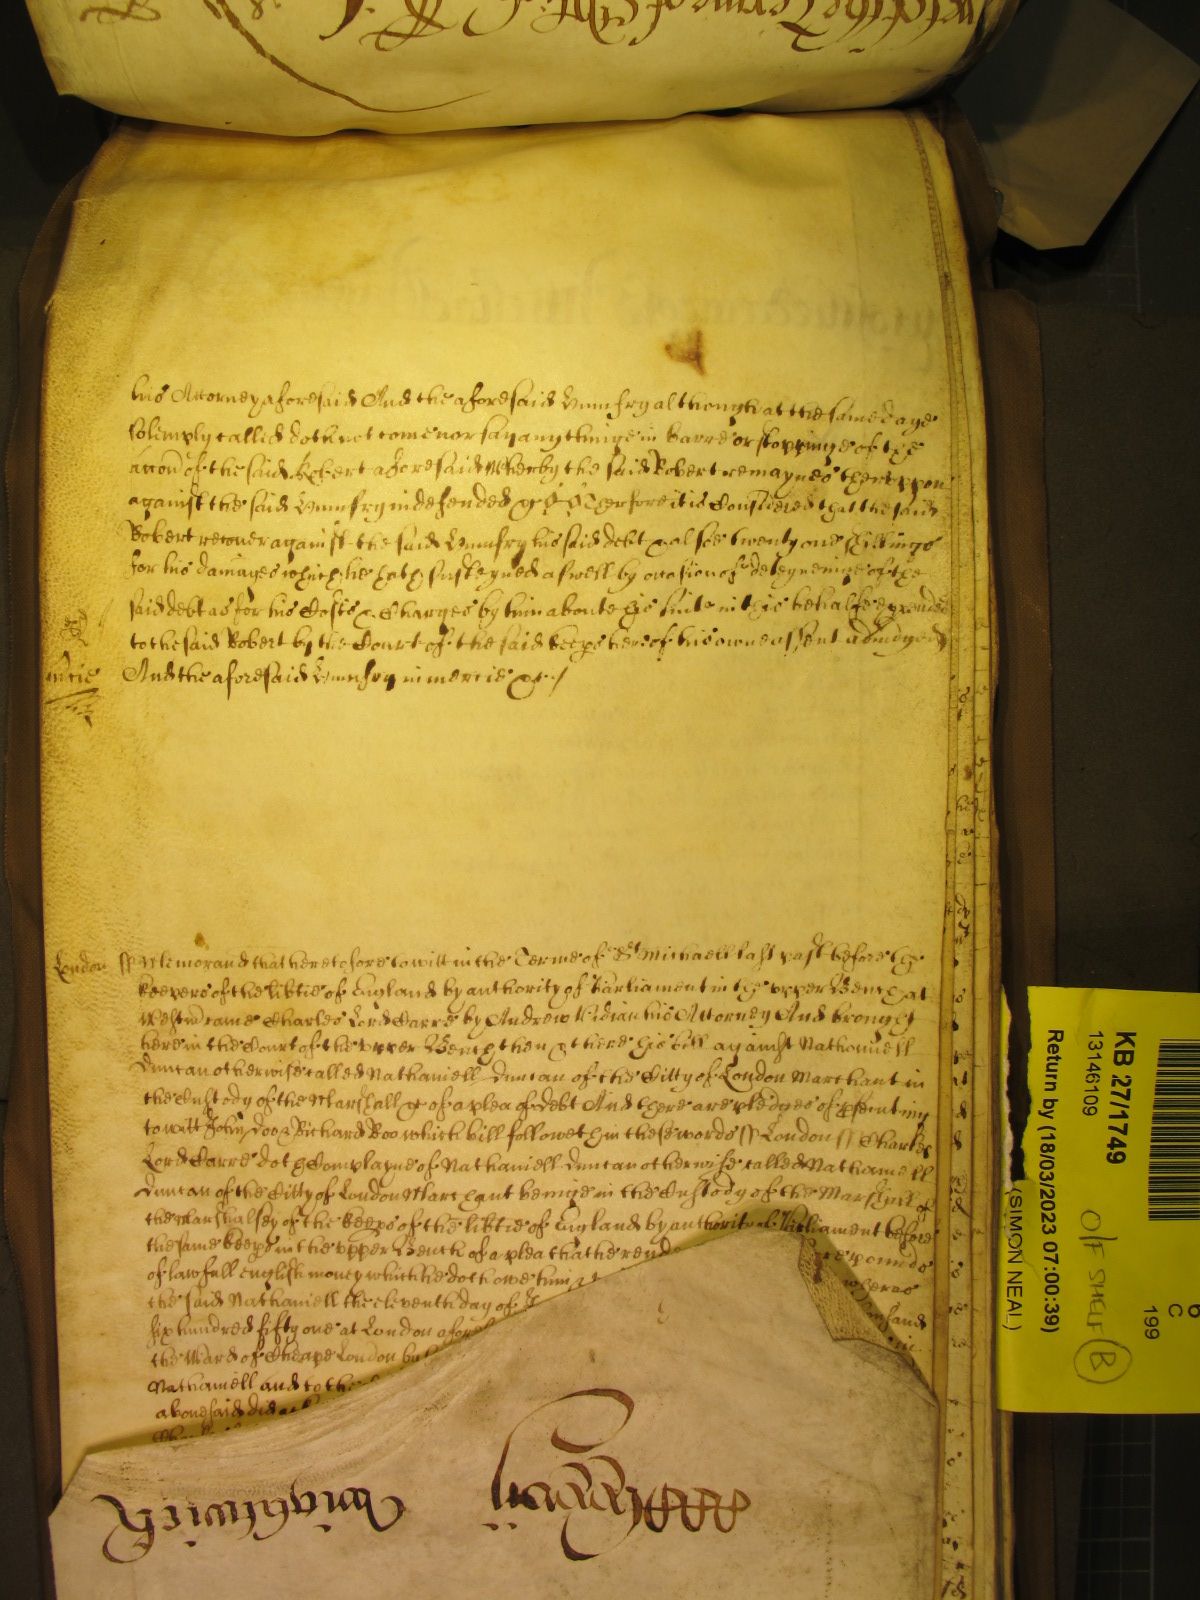 his Attorney aforesaid And the aforesaid Humfry although at the same daye
solemply called doth not come nor say any thinge in barre or stoppinge of the
accon of the said Robert aforesaid Wherby the said Robert remaynes therupon
against the said Humfry indefended &c Therfore it is Considered that the said
Robert recover against the said Humfry his said debt & alsoe twenty one shillings
for his damages which he hath susteyned aswell by occasion of deteyneinge of the
said debt as for his Costs & Charges by him aboute his suite in this behalfe expended
to the said Robert by the Court of the said keeps here of his owne assent adiudged
And the aforesaid Humfry in mercie &c /
mcie
London ss Memorand that heretofore to witt in the Terme of St Michaell last past before the
keepers of the libtie of England by authority of Parliament in the upper Bench at
Westm came Charles Lord Carre by Andrew his Attorney And brought
here in the Court of the upper Bench then & there his bill against Nathaniell
Duncan otherwise called Nathaniell Duncan of the Citty of London Marchant in
the Custody of the Marshall &c of a plea of debt And there are pledges of psecuting
to witt John Doo & Richard Roo which bill followeth in these words ss London ss Charles
Lord Carre doth Complayne of Nathaniell Duncan otherwise called Nathaniell
Duncan of the Citty of London Marchant beinge in the Custody of the Marshall of
the Marshalsey of the keeps of the libtie of England by authoritie of Parliament before
the same keeps in the upper Bench of a plea that he rend pounds
of lawfull english money which he doth owe him wheras
the said Nathaniell the eleventh day of
six hundred fifty one at London afores
the Ward of Cheape London by
Nathaniell and to the
abovesaid did
Wightwick
KB 27/1749
13146109
Return by (18/03/2023 07:00:39)
(SIMON NEAL)
O/F SHELF B
6
C
199